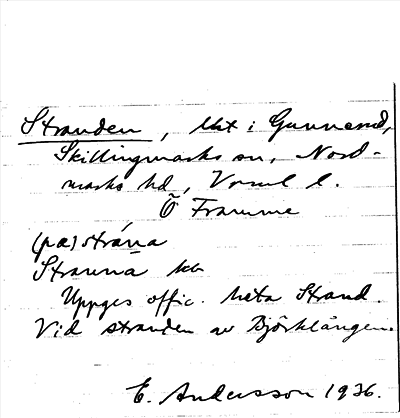 Stranden, lht i Gunnerud,
Skillingmarks sn, Nord-
marks hd, Vrml l.
Ö Framme
(pæ) strána
Stranna kb
Uppges offic. heta Strand.
Vid stranden av Björklången.
E. Andersson 1936.